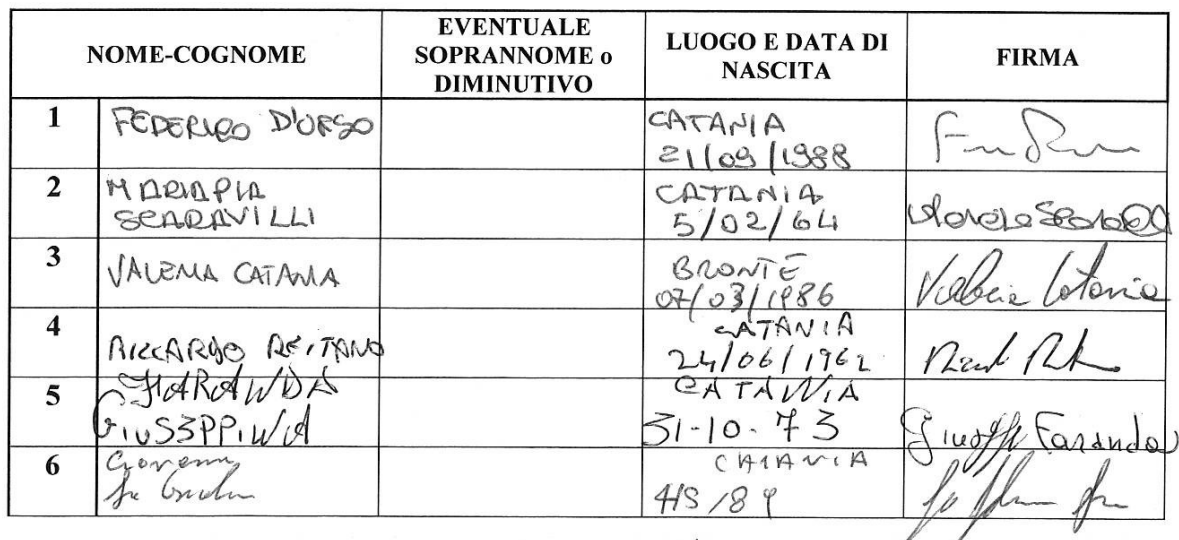 NOME-COGNOME
EVENTUALE
SOPRANNOME o
DIMINUTIVO
LUOGO E DATA DI
NASCITA
FIRMA
1
FEDERICO D'URSO
CATANIA
21/09/1988
2
MARIAPIA
SCARAVILLI
CATANIA
5/02/64
3
VALERIA CATANIA
BRONTE
07/03/1986
Valeria Catania
4
RICCARDO REITANO
CATANIA
24/06/1962
5
FARANDA
GIUSEPPINA
CATANIA
31-10-73
Faranda
6
Giovanni
CATANIA